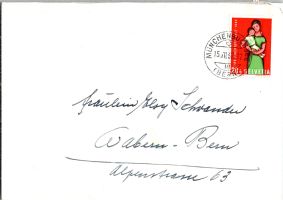 MÜNCHENBU
HELVETIA
Fräulein Cloy Schwander
Wabern - Bern
Alpenstrasse 63